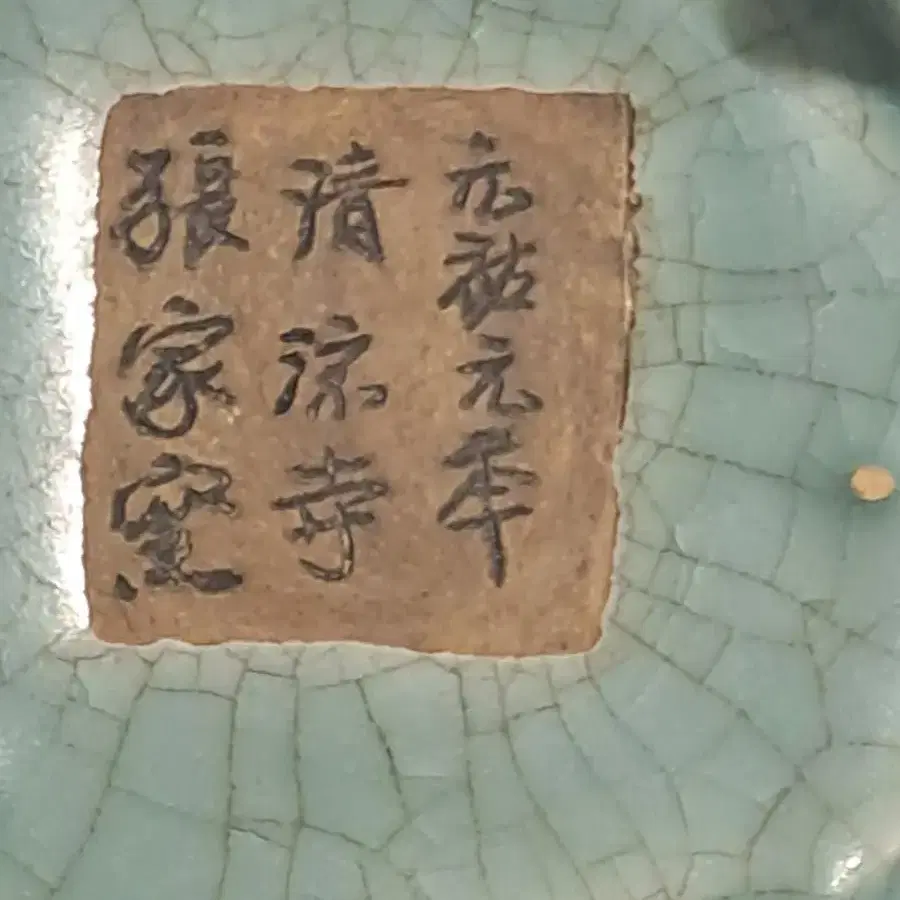 元祐元年
清涼寺
張家窯